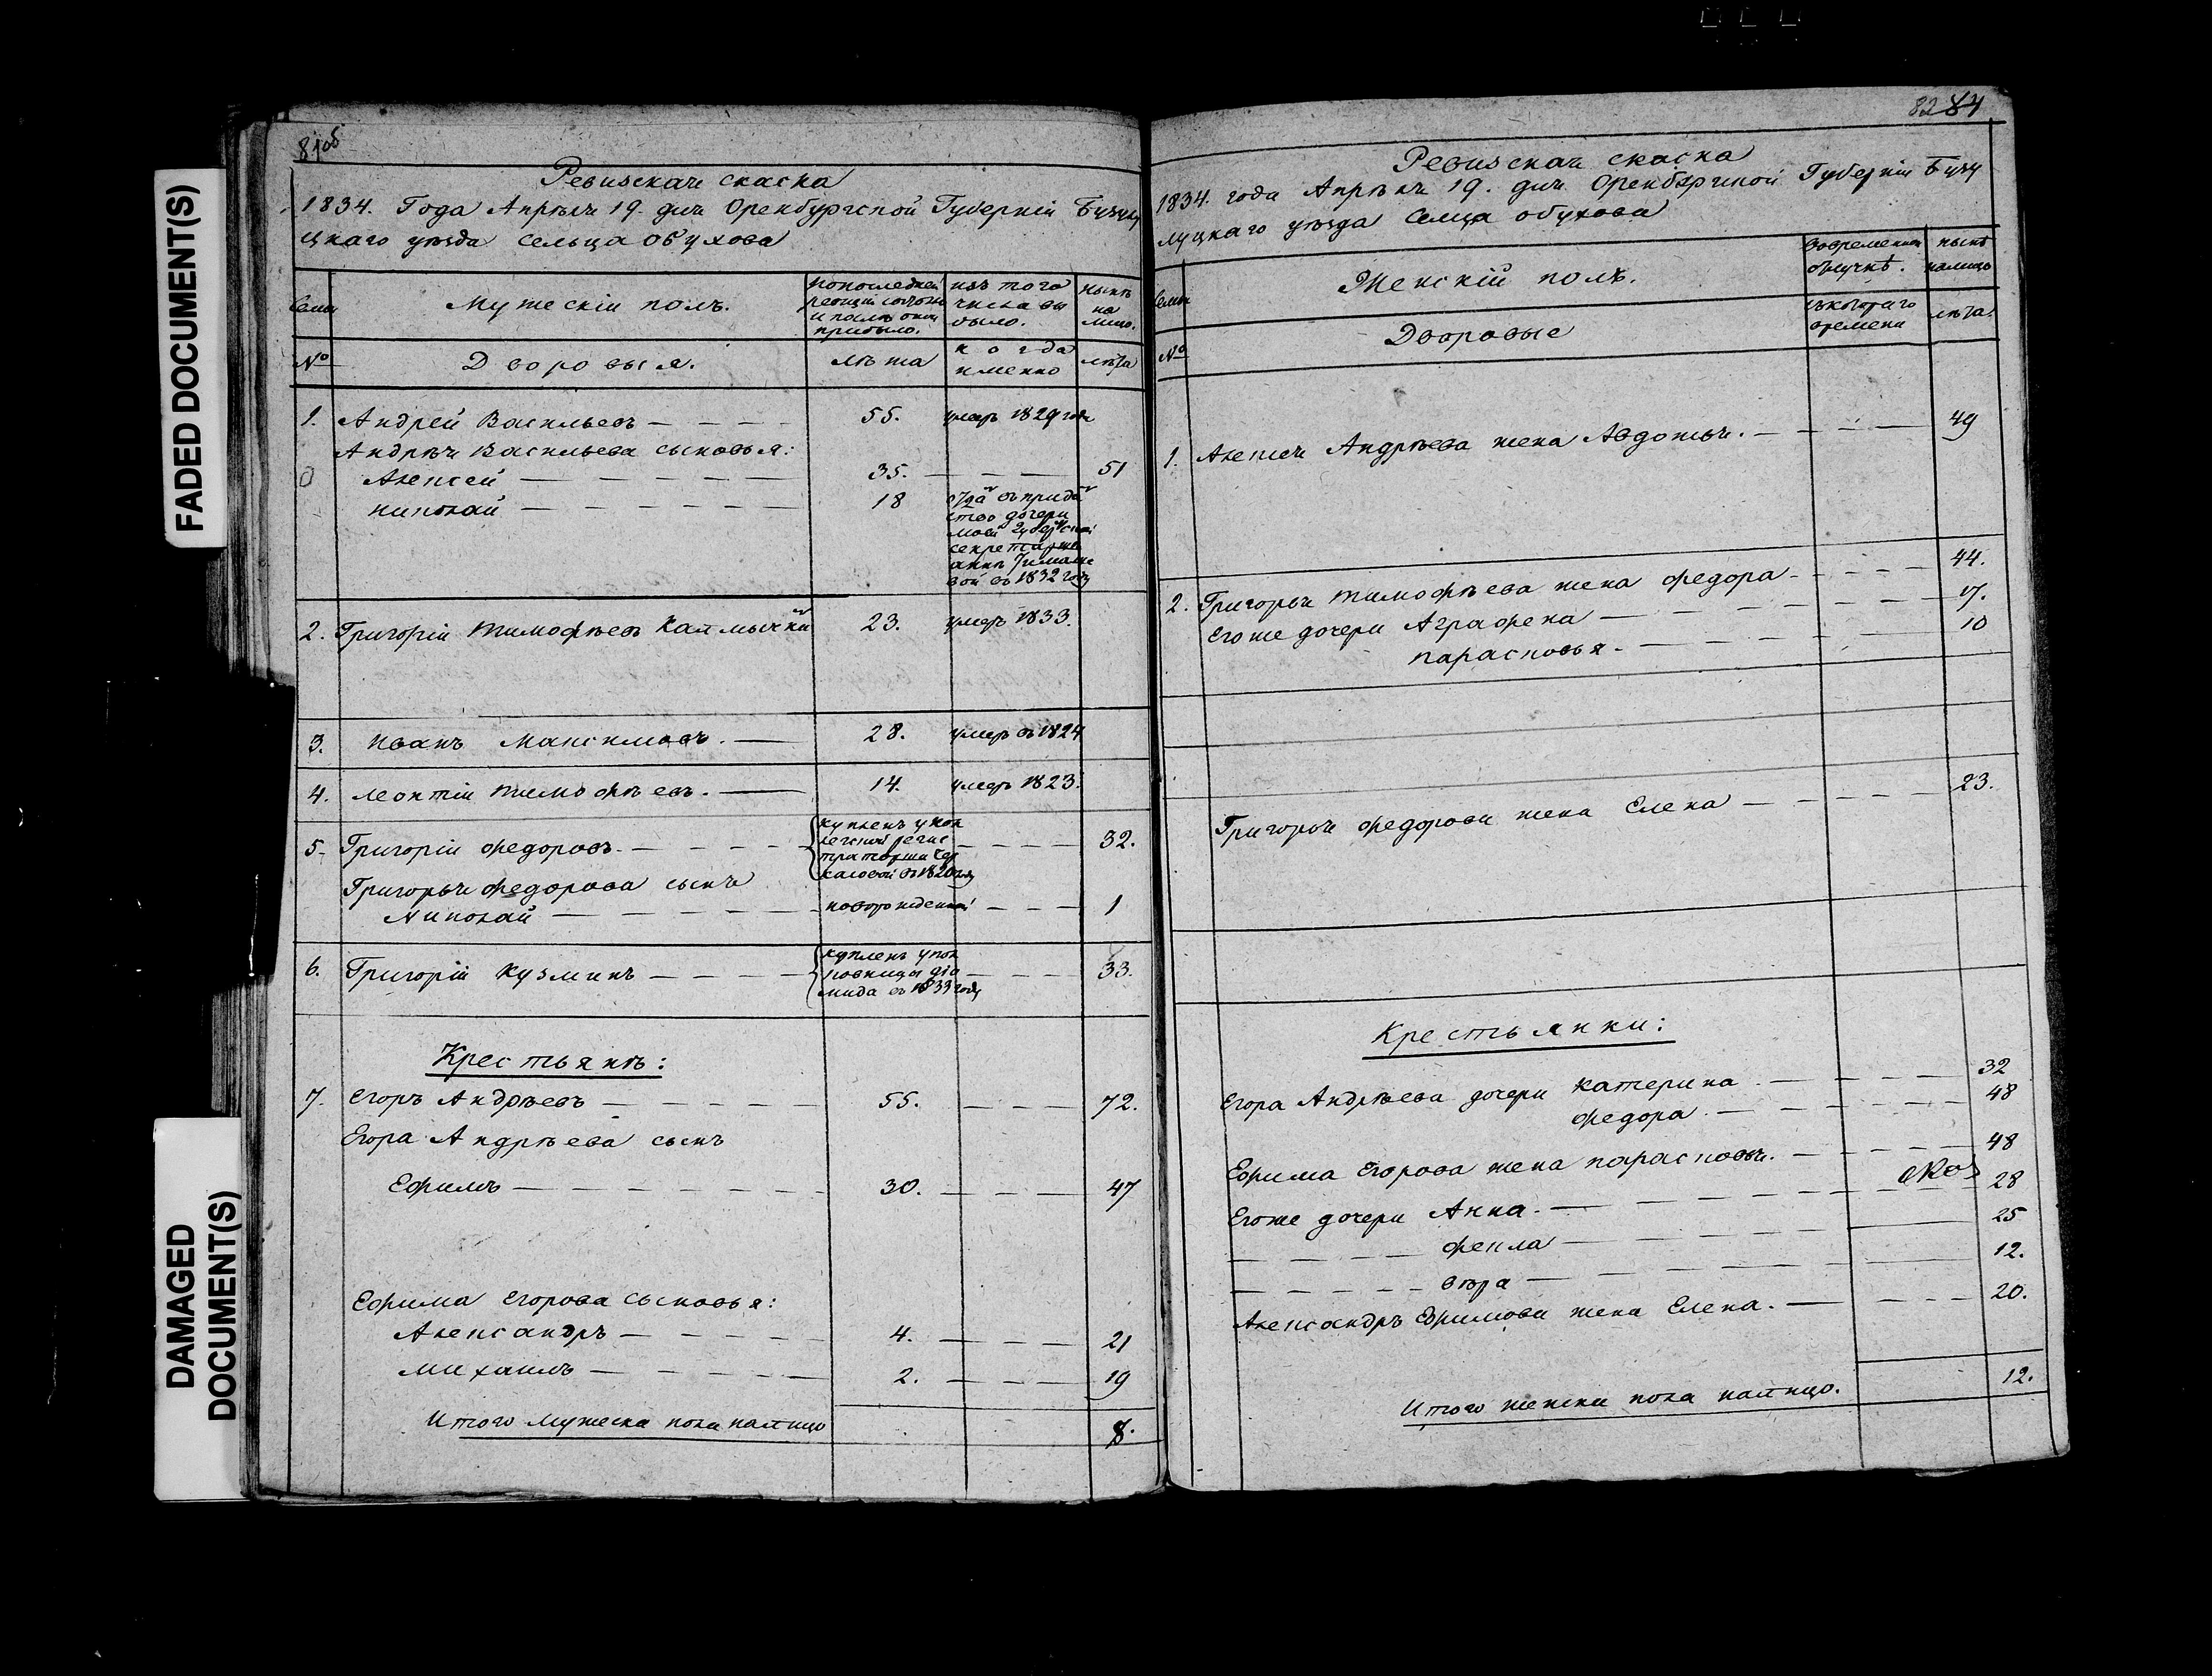 FADED DOCUMENT(S)
DAMAGED
DOCUMENT(S)
81об
Ревизская скаска
1834. Года Апрѣля 19. дня Оренбургской Губерніи Бузулу
цкаго уѣзда сельца Обухова
Семьи
Мужескій полъ.
по последней
ревизіи состояло
и послѣ оной
прибыло.
изъ того
числа вы
было.
нынѣ
на
лицо.
№
Дворовыя.
лѣта
когда
именно
лѣта
1. Андрей Васильевъ 55. умеръ 1829 года
Андрѣя Васильева сыновья:
0 Алексей 35. 51
николай 18
отдан въ придан
ство дочери
моей губернской
секретарше
аннѣ
вой въ 1832 году
2. Григорій тимофѣевъ Калмычкин 23. умеръ 1833.
3. иванъ Максимовъ. 28. умеръ въ 1824
4. леонтій тимофѣевъ. 14. умеръ 1823.
5. Григорій федоровъ. 32.
купленъ у кол
лежской регис
траторши Чер
касовой въ 1820 году
Григорья федорова сынъ
Николай новорожденный 1
6. Григорій Кузминъ 33.
купленъ у пол
ковницы діо
мида въ 1833 году
Крестьянѣ:
7. Егоръ Андрѣевъ 55. 72.
Егора Андрѣева сынъ
Ефимъ 30. 47
Ефима Егорова сыновья:
Александръ 4. 21
михаилъ 2. 19
Итого мужеска пола налицо 8.
82 84
Ревизская скаска
1834. года Апрѣля 19. дня Оренбургской Губерніи Бузу
луцкаго уѣзда Селца обухова
Семьи
Женскій полъ.
во временной
отлучкѣ.
нынѣ
налицо
№
Дворовые
съ котораго
времени
лѣта.
1. Алексея Андрѣева жена Авдотья. 49
2. Григорья тимофѣева жена федора 44.
Егоже дочери Аграфена 17.
парасковья. 10
Григорья федорова жена Елена 23.
Крестьянки:
Егора Андрѣева дочери катерина 32
федора 48
Ефима Егорова жена парасковья. 48
Егоже дочери Анна. 28
фекла 25
вѣра 12.
Александръ Ефимова жена Елена. 20.
Итого женска пола налицо. 12.